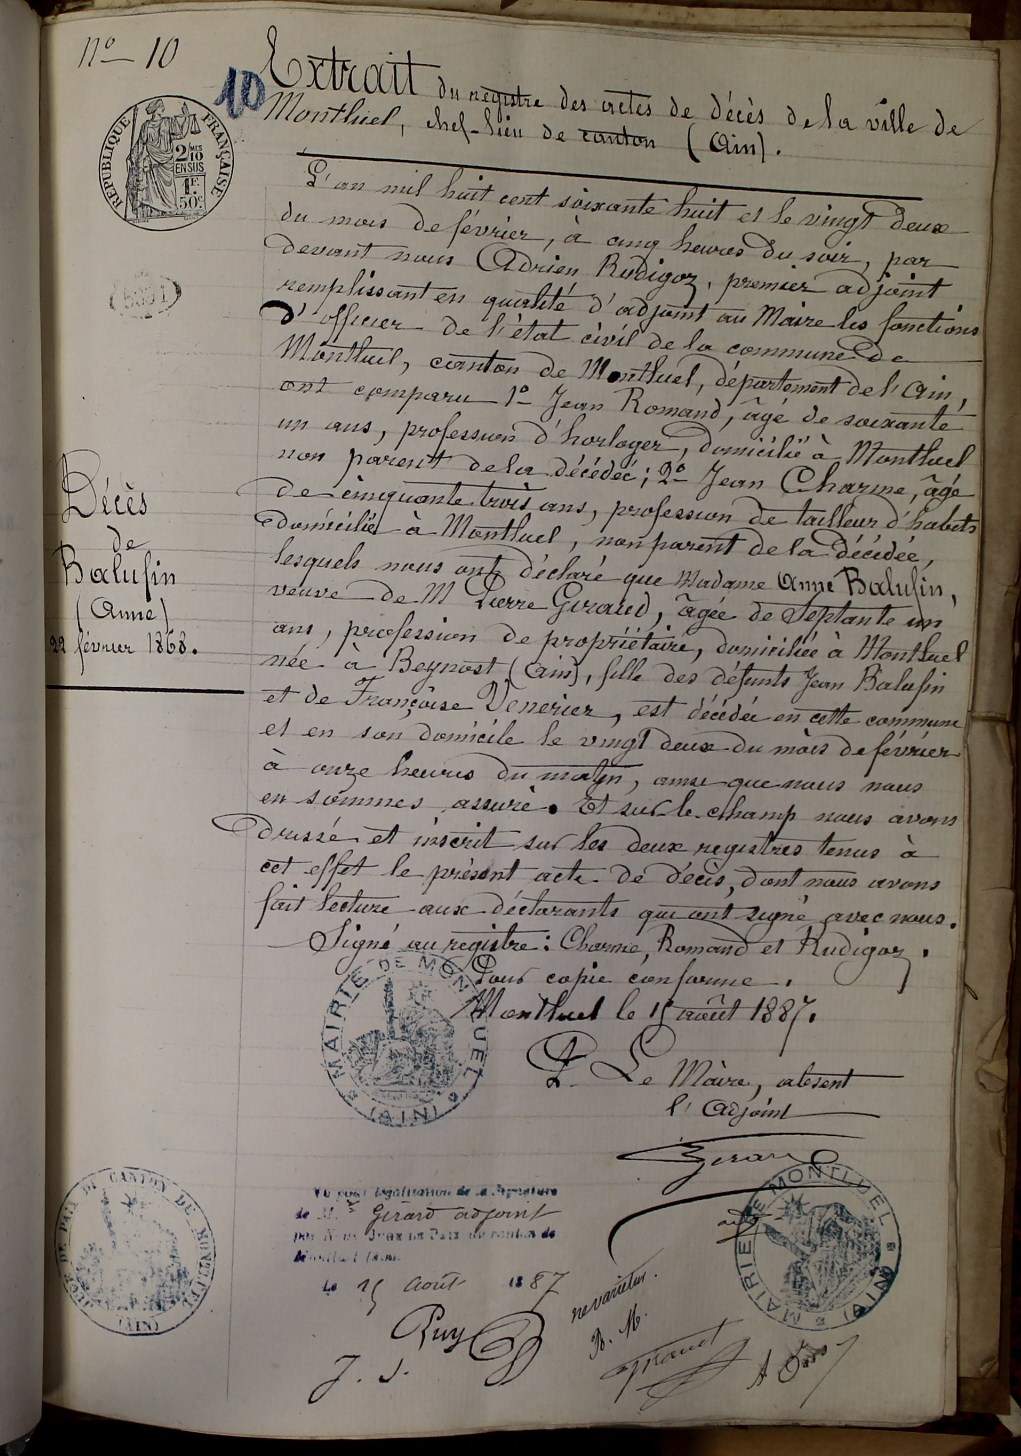 N° 10
10
Extrait du registre des actes de décès de la ville de
Montluel, chef-lieu de canton (Ain).
RÉPUBLIQUE FRANÇAISE
2/10
EN SUS
1F.
50c
L'an mil huit cent soixante huit et le vingt deux
du mois de février, à cinq heures du soir, par
devant nous Adrien Rudigoz, premier adjoint
remplissant en qualité d'adjoint au Maire les fonctions
d'officier de l'état civil de la commune de
Montluel, canton de Montluel, département de l'Ain,
ont comparu 1° Jean Romand, âgé de soixante
un ans, profession d'horloger, domicilié à Montluel
non parent de la décédée; 2° Jean Charme, âgé
de cinquante trois ans, profession de tailleur d'habits
domicilié à Montluel, non parent de la décédée,
lesquels nous ont déclaré que Madame Anne Balufin,
veuve de M Pierre Giraud, âgée de Septante un
ans, profession de propriétaire, domiciliée à Montluel
née à Beynost (Ain), fille des défunts Jean Balufin
et de Françoise Venerier, est décédée en cette commune
et en son domicile le vingt deux du mois de février
à onze heures du matin, ainsi que nous nous
en sommes assuré. Et sur le champ nous avons
dressé et inscrit sur les deux registres tenus à
cet effet le présent acte de décès, dont nous avons
fait lecture aux déclarants qui ont signé avec nous.
Signé au registre: Charme, Romand et Rudigoz.
Pour copie conforme.
Montluel le 15 août 1887.
P. Le Maire, absent
l'Adjoint
Décès
de
Balufin
(Anne)
22 février 1868.
MAIRIE DE MONTLUEL
(AIN)
Girard
Vu pour légalisation de la Signature
de M. Girard adjoint
par Nous Juge de Paix du canton de
Montluel (Ain)
Le 15 Août 1887
ne varietur.
J. S.
JUGE DE PAIX DU CANTON DE MONTLUEL
(AIN)
MAIRIE DE MONTLUEL
(AIN)